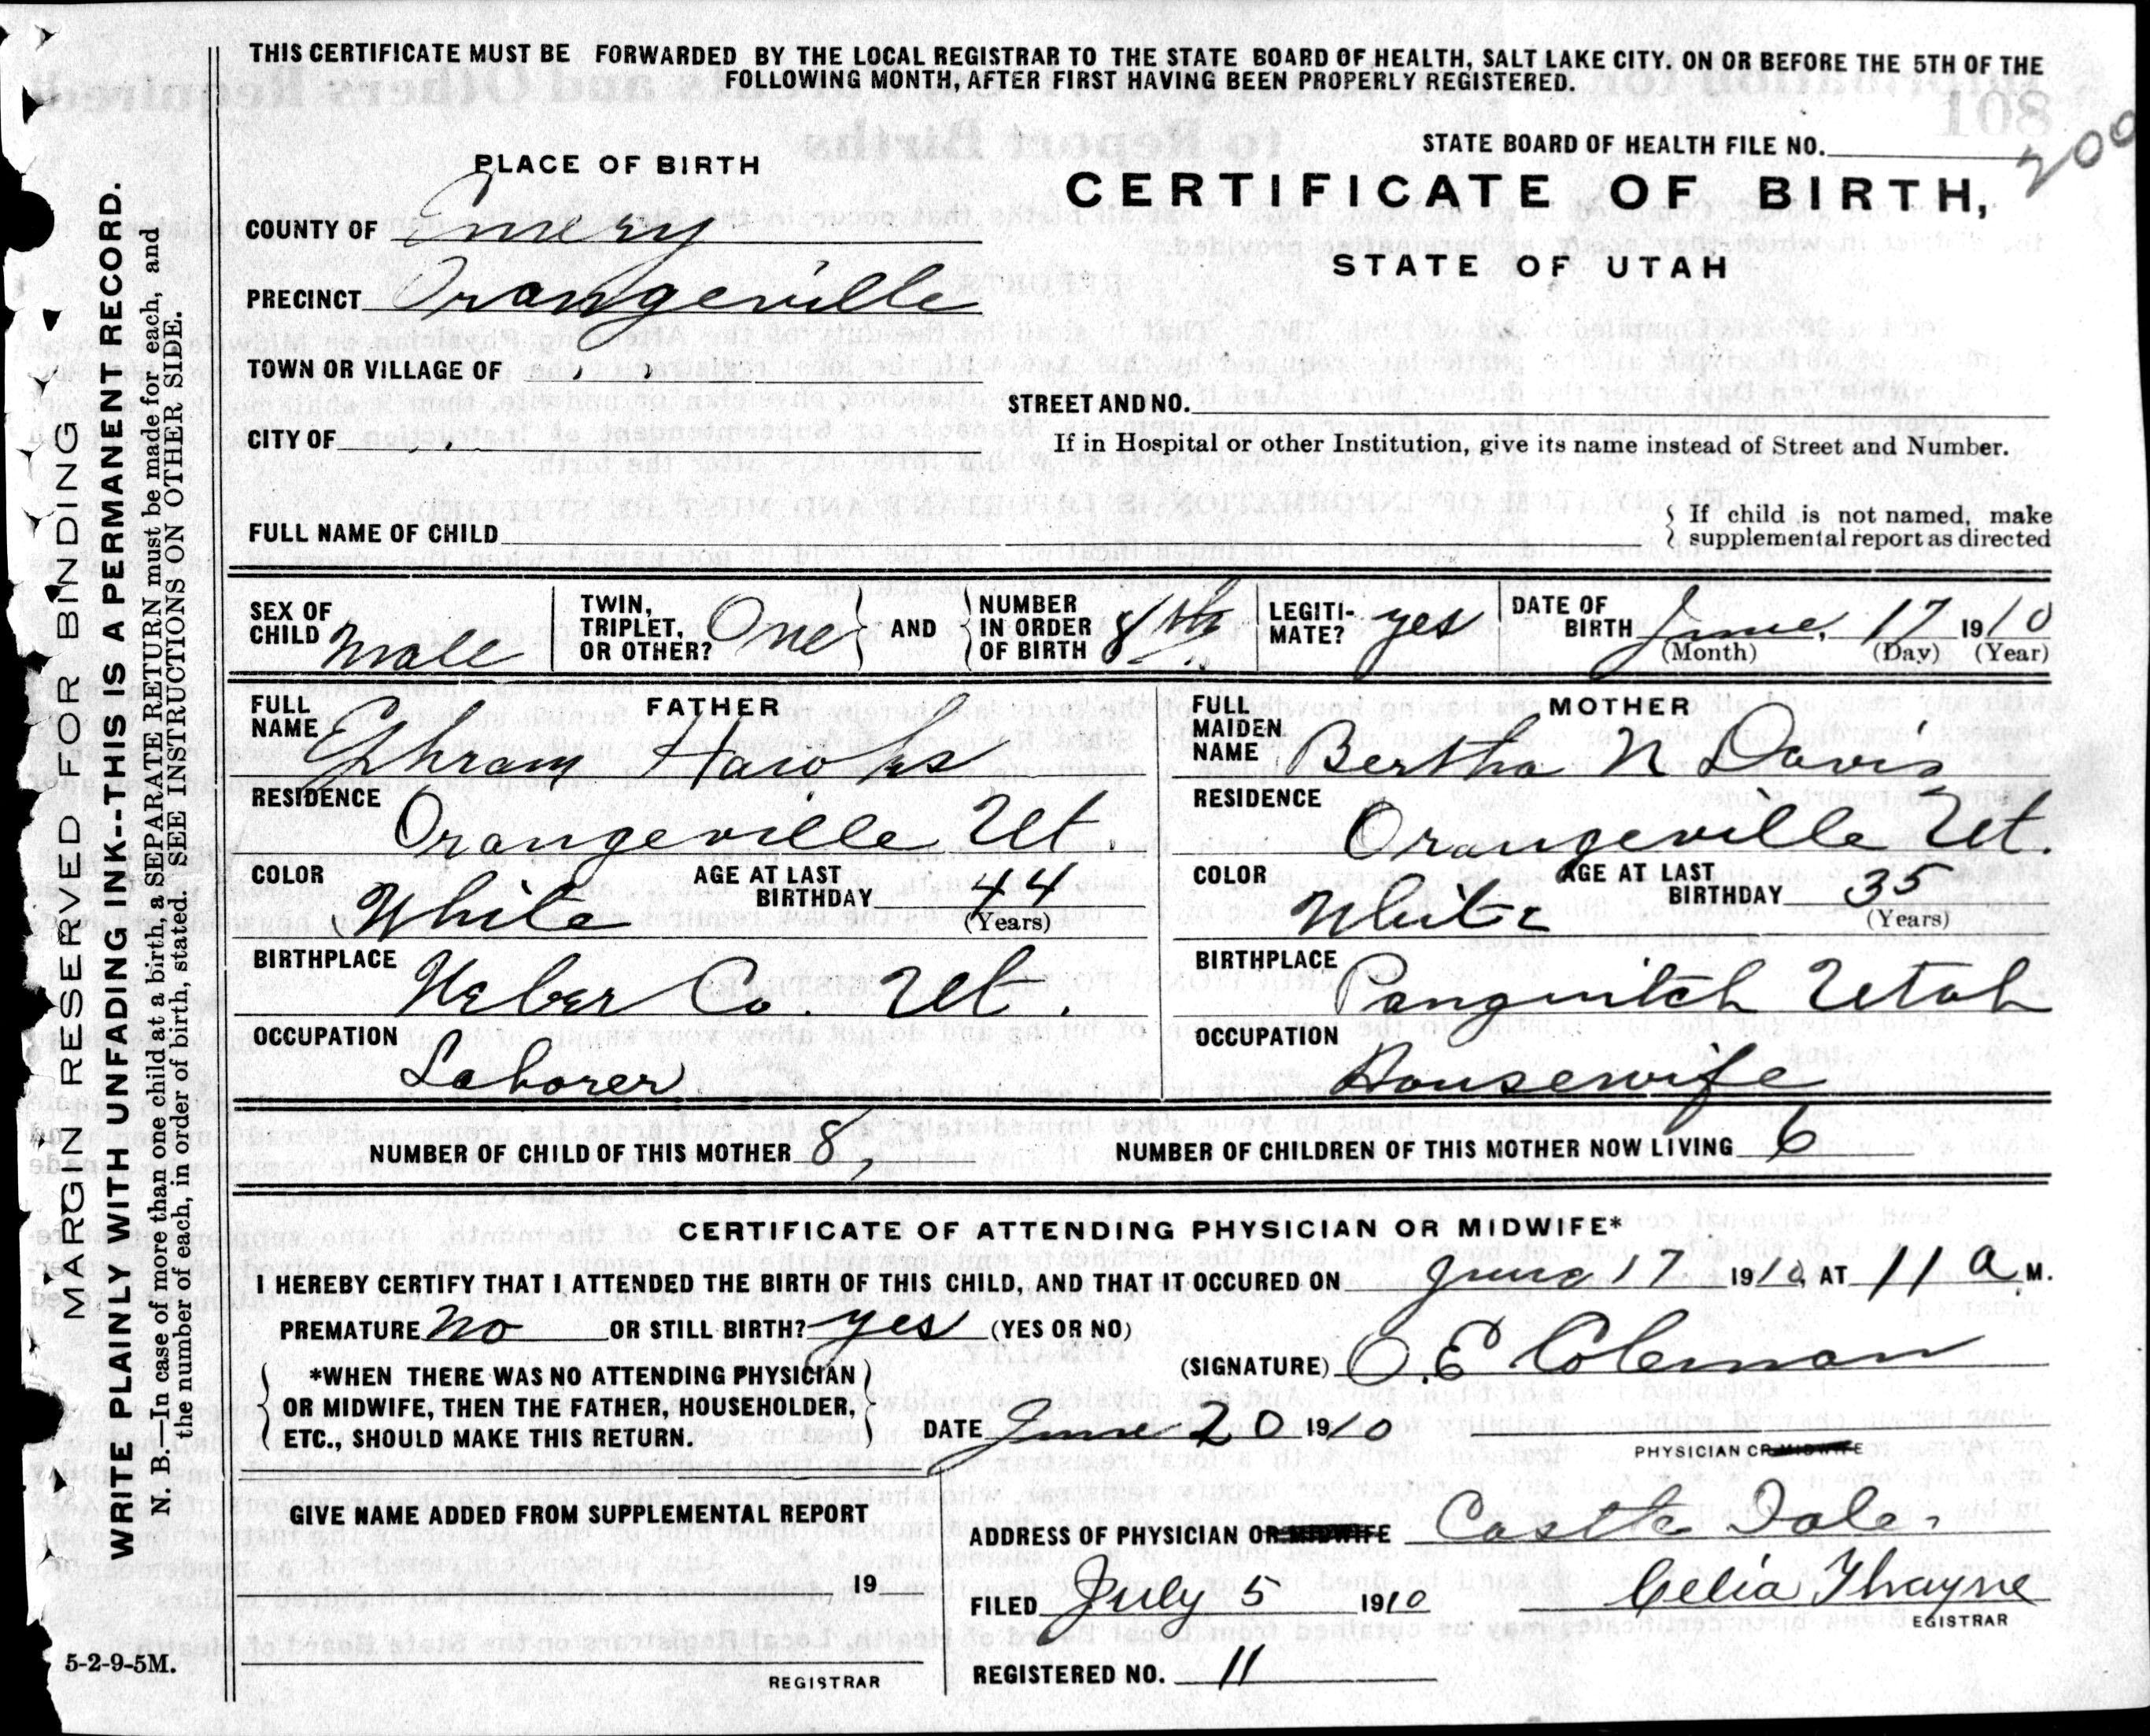 THIS CERTIFICATE MUST BE FORWARDED BY THE LOCAL REGISTRAR TO THE STATE BOARD OF HEALTH, SALT LAKE CITY, ON OR BEFORE THE 5TH OF THE
FOLLOWING MONTH, AFTER FIRST HAVING BEEN PROPERLY REGISTERED.
STATE BOARD OF HEALTH FILE NO. 200
108
PLACE OF BIRTH
CERTIFICATE OF BIRTH,
STATE OF UTAH
COUNTY OF Emery
PRECINCT Orangeville
TOWN OR VILLAGE OF , ,
STREET AND NO.
CITY OF , ,
If in Hospital or other Institution, give its name instead of Street and Number.
FULL NAME OF CHILD
{ If child is not named, make
supplemental report as directed
SEX OF CHILD Male
TWIN, TRIPLET, OR OTHER? One } AND { NUMBER IN ORDER OF BIRTH 8th
LEGITI-MATE? yes
DATE OF BIRTH June, 17 1910
(Month) (Day) (Year)
FATHER
FULL NAME Ephram Hawks
RESIDENCE Orangeville Ut.
COLOR White AGE AT LAST BIRTHDAY 44
(Years)
BIRTHPLACE Weber Co. Ut.
OCCUPATION Laborer
MOTHER
FULL MAIDEN NAME Bertha N Davis
RESIDENCE Orangeville Ut.
COLOR White AGE AT LAST BIRTHDAY 35
(Years)
BIRTHPLACE Panguitch Utah
OCCUPATION Housewife
NUMBER OF CHILD OF THIS MOTHER 8, NUMBER OF CHILDREN OF THIS MOTHER NOW LIVING 6
CERTIFICATE OF ATTENDING PHYSICIAN OR MIDWIFE*
I HEREBY CERTIFY THAT I ATTENDED THE BIRTH OF THIS CHILD, AND THAT IT OCCURED ON June 17 1910, AT 11 a M.
PREMATURE no OR STILL BIRTH? yes (YES OR NO)
(SIGNATURE) O. E Coleman
{ *WHEN THERE WAS NO ATTENDING PHYSICIAN
OR MIDWIFE, THEN THE FATHER, HOUSEHOLDER,
ETC., SHOULD MAKE THIS RETURN. }
DATE June 20 1910
PHYSICIAN OR MIDWIFE
GIVE NAME ADDED FROM SUPPLEMENTAL REPORT
19
REGISTRAR
ADDRESS OF PHYSICIAN OR MIDWIFE Castle Dale.
FILED July 5 1910 Celia Thayne
EGISTRAR
REGISTERED NO. 11
MARGIN RESERVED FOR BINDING
WRITE PLAINLY WITH UNFADING INK--THIS IS A PERMANENT RECORD.
N. B.—In case of more than one child at a birth, a SEPARATE RETURN must be made for each, and
the number of each, in order of birth, stated. SEE INSTRUCTIONS ON OTHER SIDE.
5-2-9-5M.